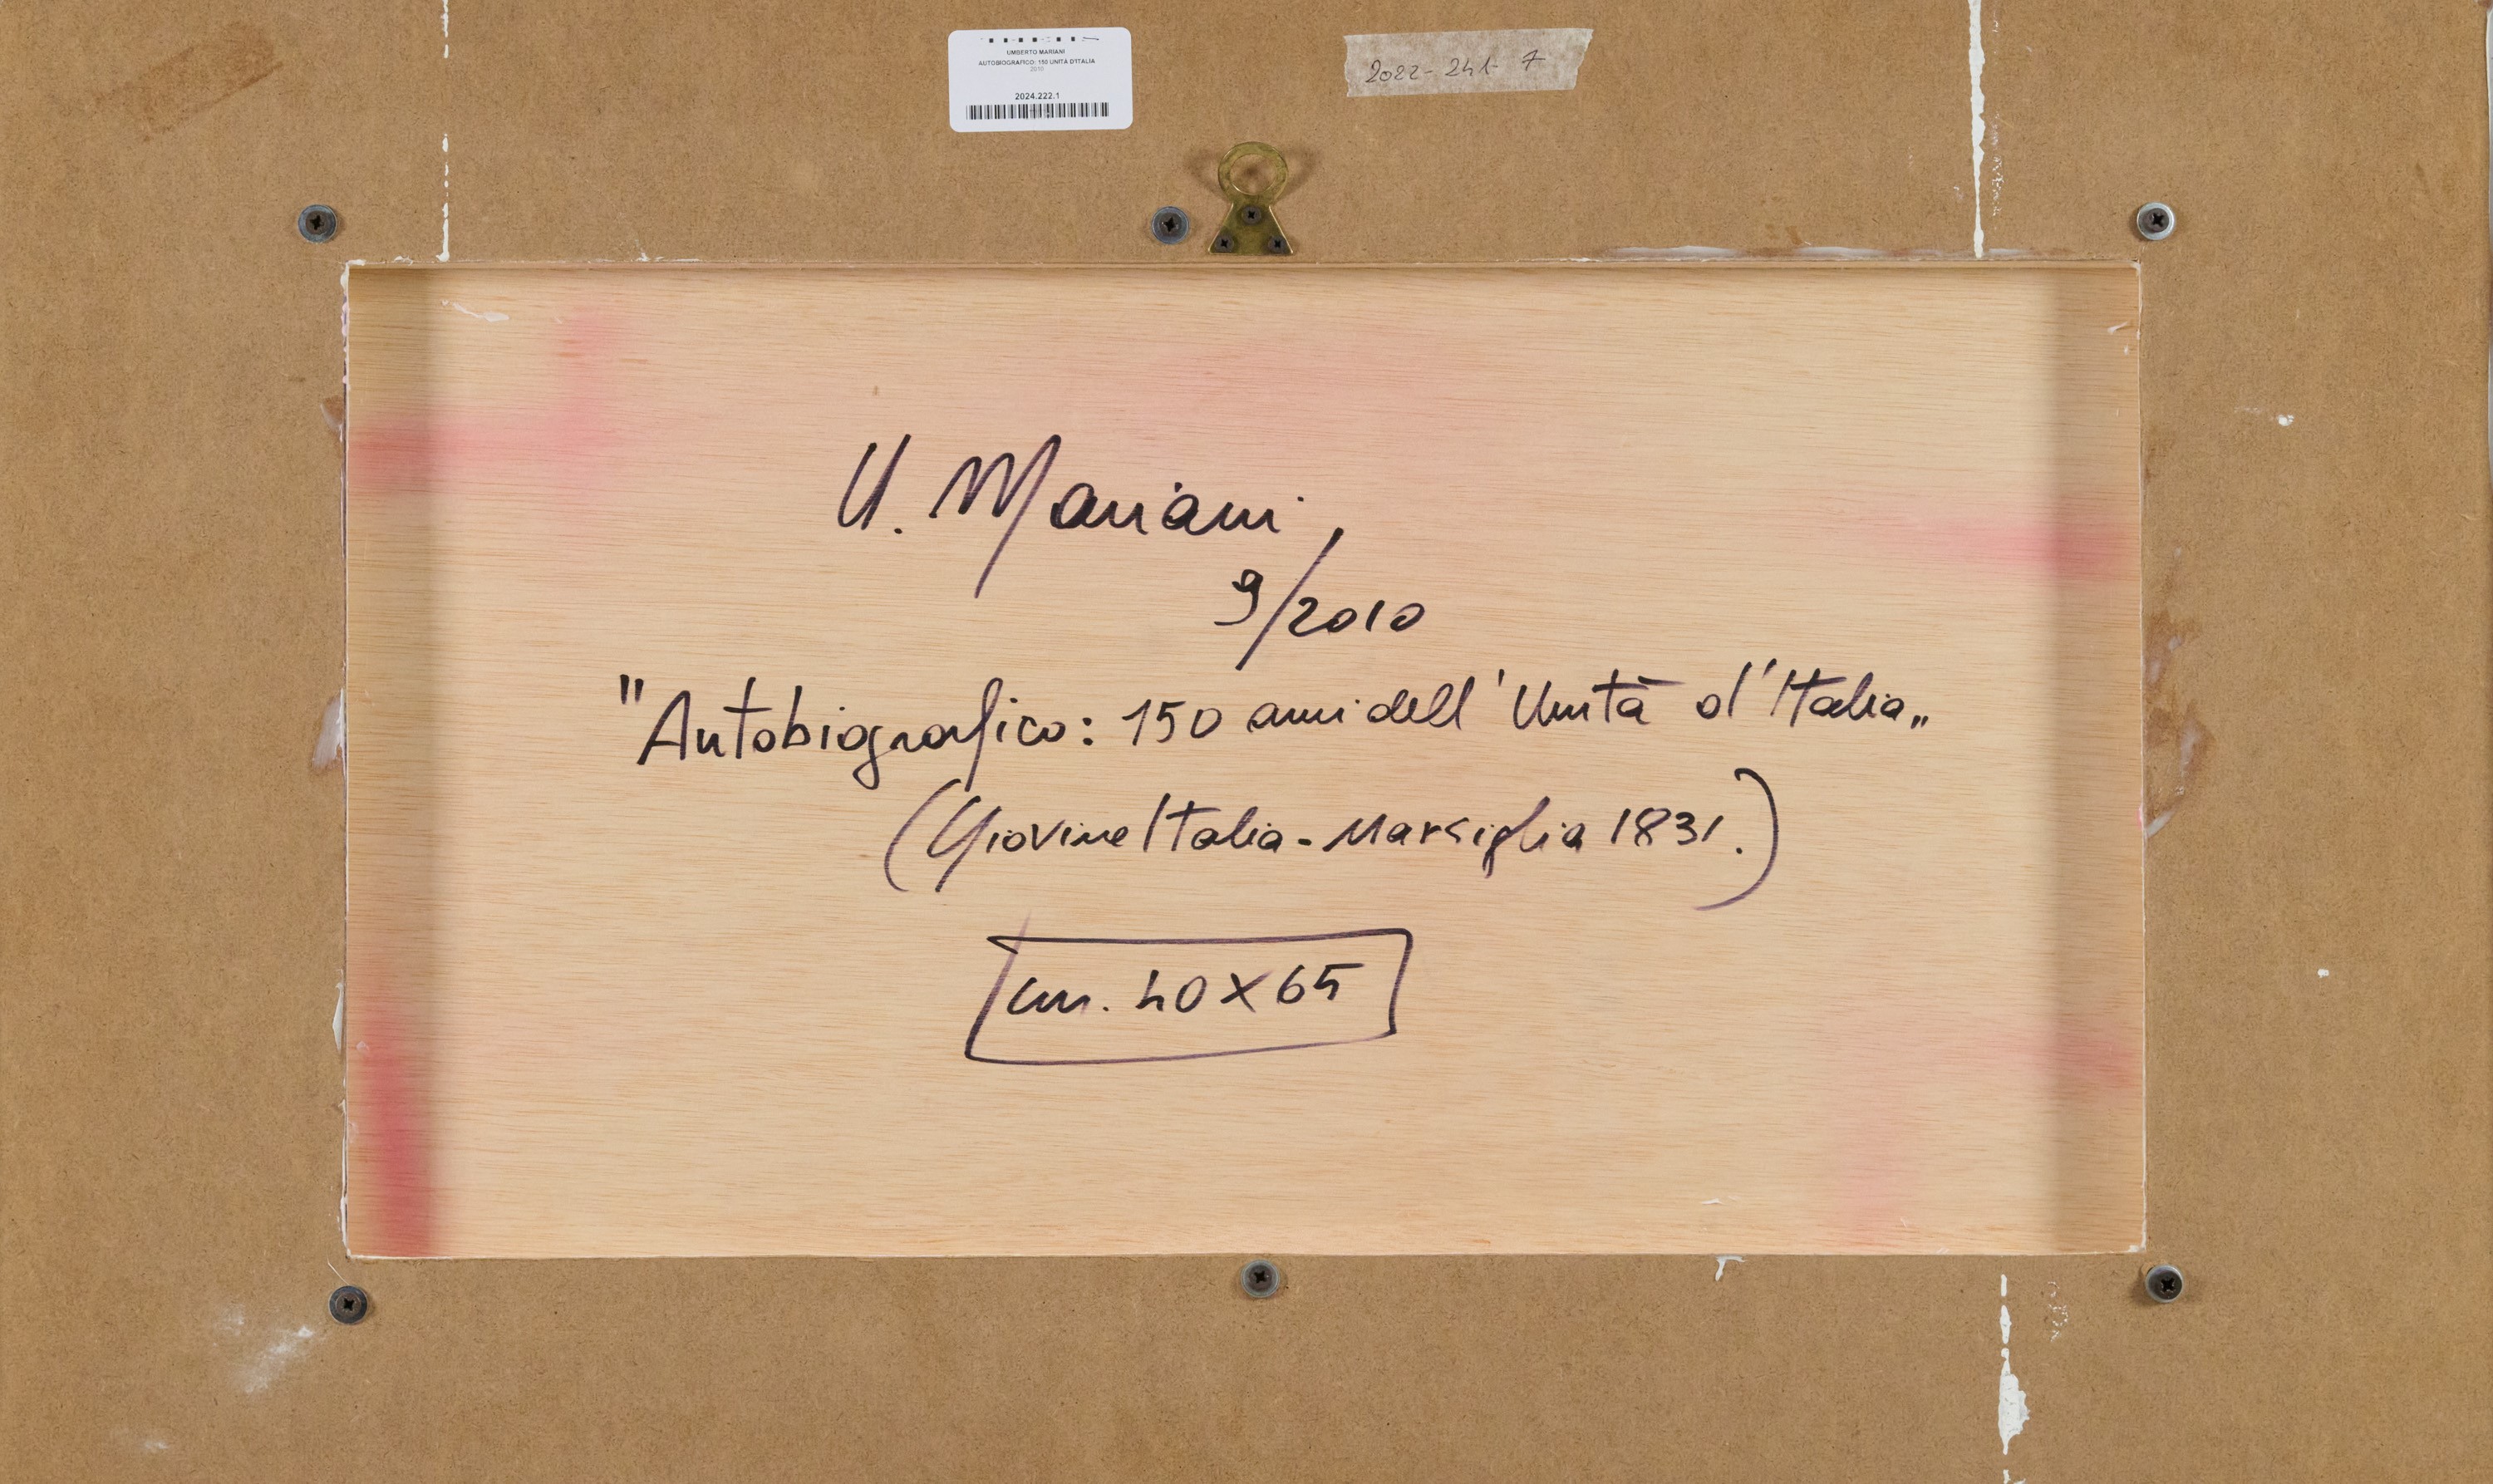 UMBERTO MARIANI
AUTOBIOGRAFICO: 150 UNITÀ D'ITALIA
2010
2024.222.1
2022-241-7
U. Mariani
9/2010
"Autobiografico: 150 anni dell'Unità d'Italia"
(Giovine Italia - Marsiglia 1831.)
cm. 40X65